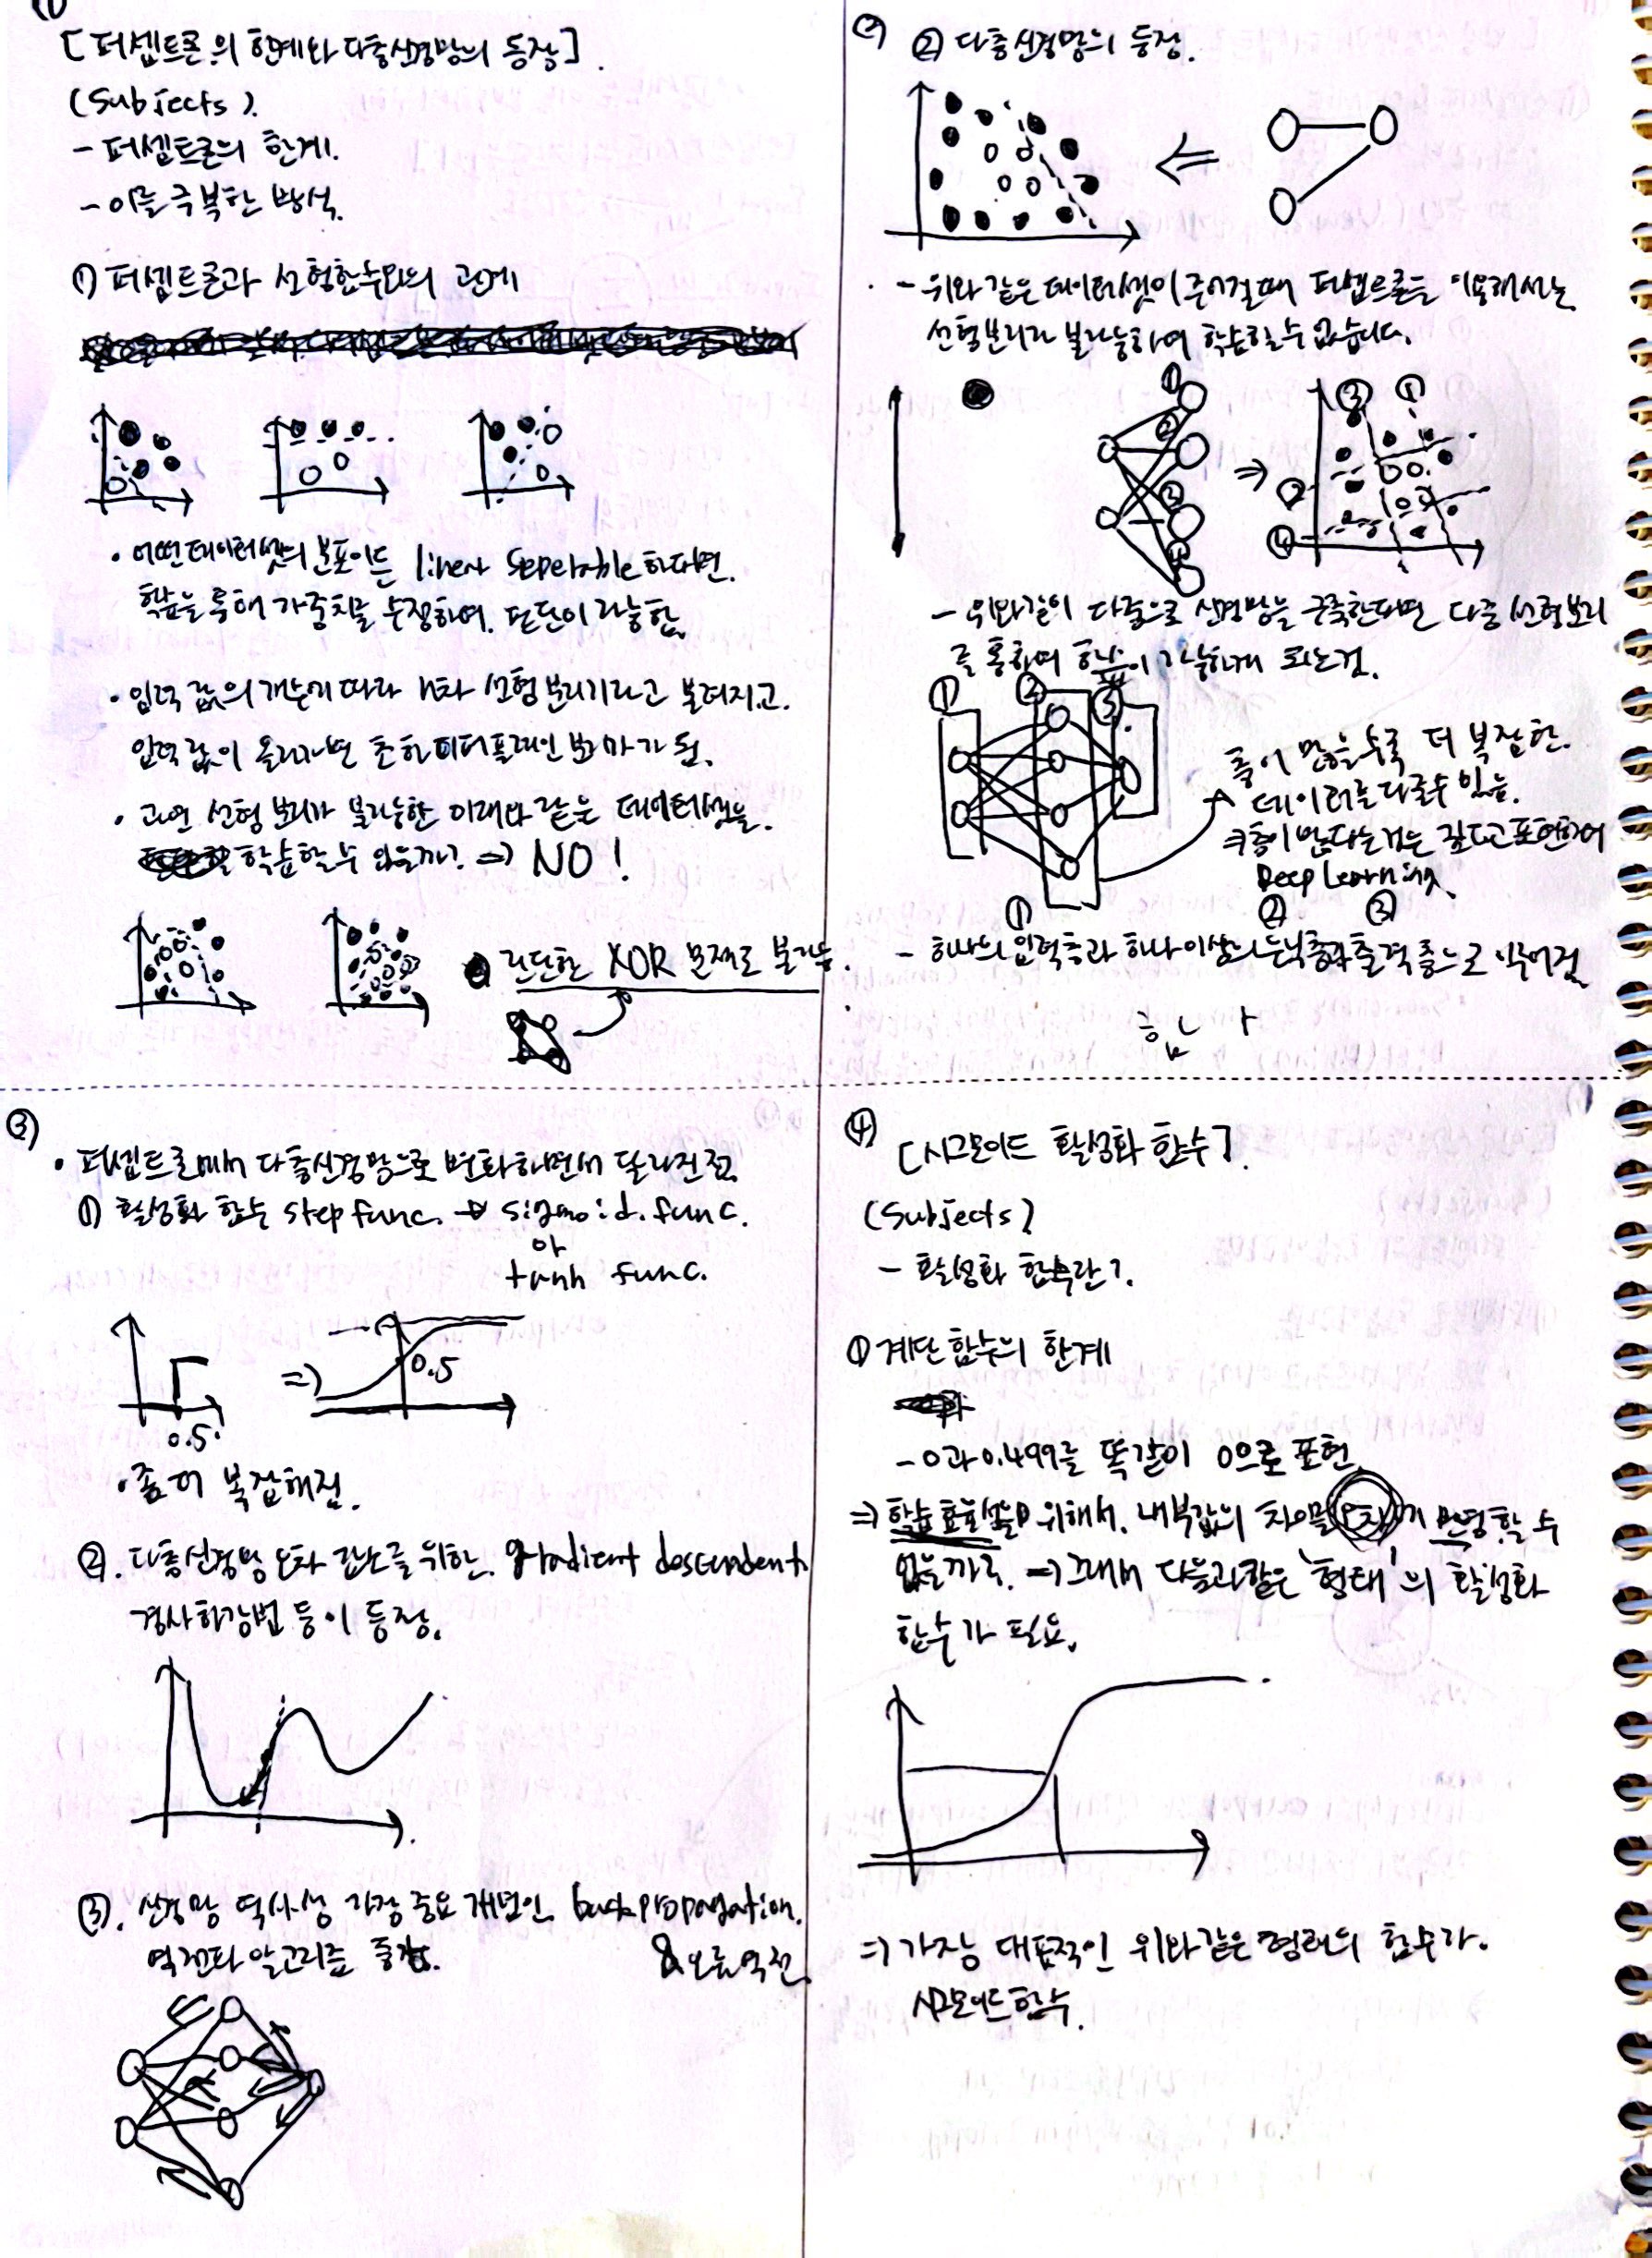 ①
[퍼셉트론의 한계와 다층신경망의 등장].
(Subjects).
- 퍼셉트론의 한계.
- 이를 극복한 방식.
① 퍼셉트론과 선형함수와의 관계
• 어떤 데이터셋의 분포이든 linear Seperable 하다면.
학습을 통해 가중치를 수정하여. 판단이 가능함.
• 입력 값의 개수에 따라 n차 선형 분리기라고 불려지고.
입력 값이 올라가면
• 과연 선형 분리가 불가능한 아래와 같은 데이터셋을.
학습할 수 있을까? ⇒ NO!
간단한 XOR 문제도 불가능.
②
② 다층신경망의 등장.
- 위와 같은 데이터셋이 주어질때 퍼셉트론을 이용해서는
선형분리가 불가능하여 학습할 수 없습니다.
① ② ③ ④
③ ①
②
④
- 위와같이 다층으로 신경망을 구축한다면 다중 선형분리
를 통하여 학습이 가능하게 되는것.
① ② ③
층이 많을수록 더 복잡한.
데이터를 다룰수 있음.
층이 많다는것은 깊다고 표현하여
Deep Learning.
① ② ③
- 하나의 입력층과 하나 이상의 은닉층과 출력층으로 이루어짐
③
• 퍼셉트론에서 다층신경망으로 변화하면서 달라진 점.
① 활성화 함수 step func. → sigmoid. func.
or
tanh func.
0.5
⇒
0.5
• 좀 더 복잡해짐.
②. 다층신경망 오차 감소를 위한. gradient descendent
경사하강법 등이 등장.
③. 신경망 역사상 가장 중요 개념인 backpropagation.
역전파 알고리즘 등장.
& 오류역전
④
[시그모이드 활성화 함수].
(Subjects)
- 활성화 함수란?.
① 계단함수의 한계
- 0과 0.499를 똑같이 0으로 표현.
⇒ 학습 효율성을 위해서. 내부값의 차이를 반영할 수
없을까?. ⇒ 그래서 다음과같은 '형태'의 활성화
함수가 필요.
⇒ 가장 대표적인 위와같은 형태의 함수가.
시그모이드 함수.